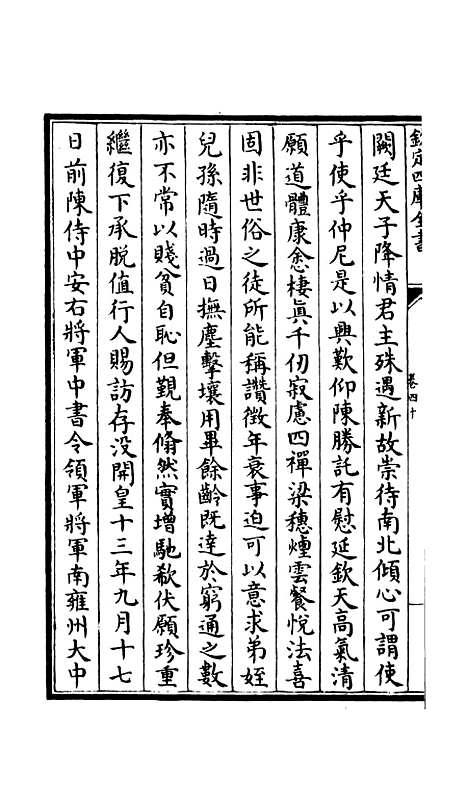 欽定四庫全書
卷四十
闕廷天子降情君主殊遇新故崇待南北傾心可謂使
乎使乎仲尼是以興歎仰陳勝託有慰延欽天高氣清
願道體康悆棲眞千仞寂慮四禪梁穗煙雲餐悅法喜
固非世俗之徒所能稱讚徴年衰事迫可以意求弟姪
兒孫隨時過日撫塵擊壤用畢餘齡既達於窮通之數
亦不常以賤貧自恥但覲奉翛然實增馳欷伏願珍重
繼復下承脫值行人賜訪存没開皇十三年九月十七
日前陳侍中安右將軍中書令領軍將軍南雍州大中